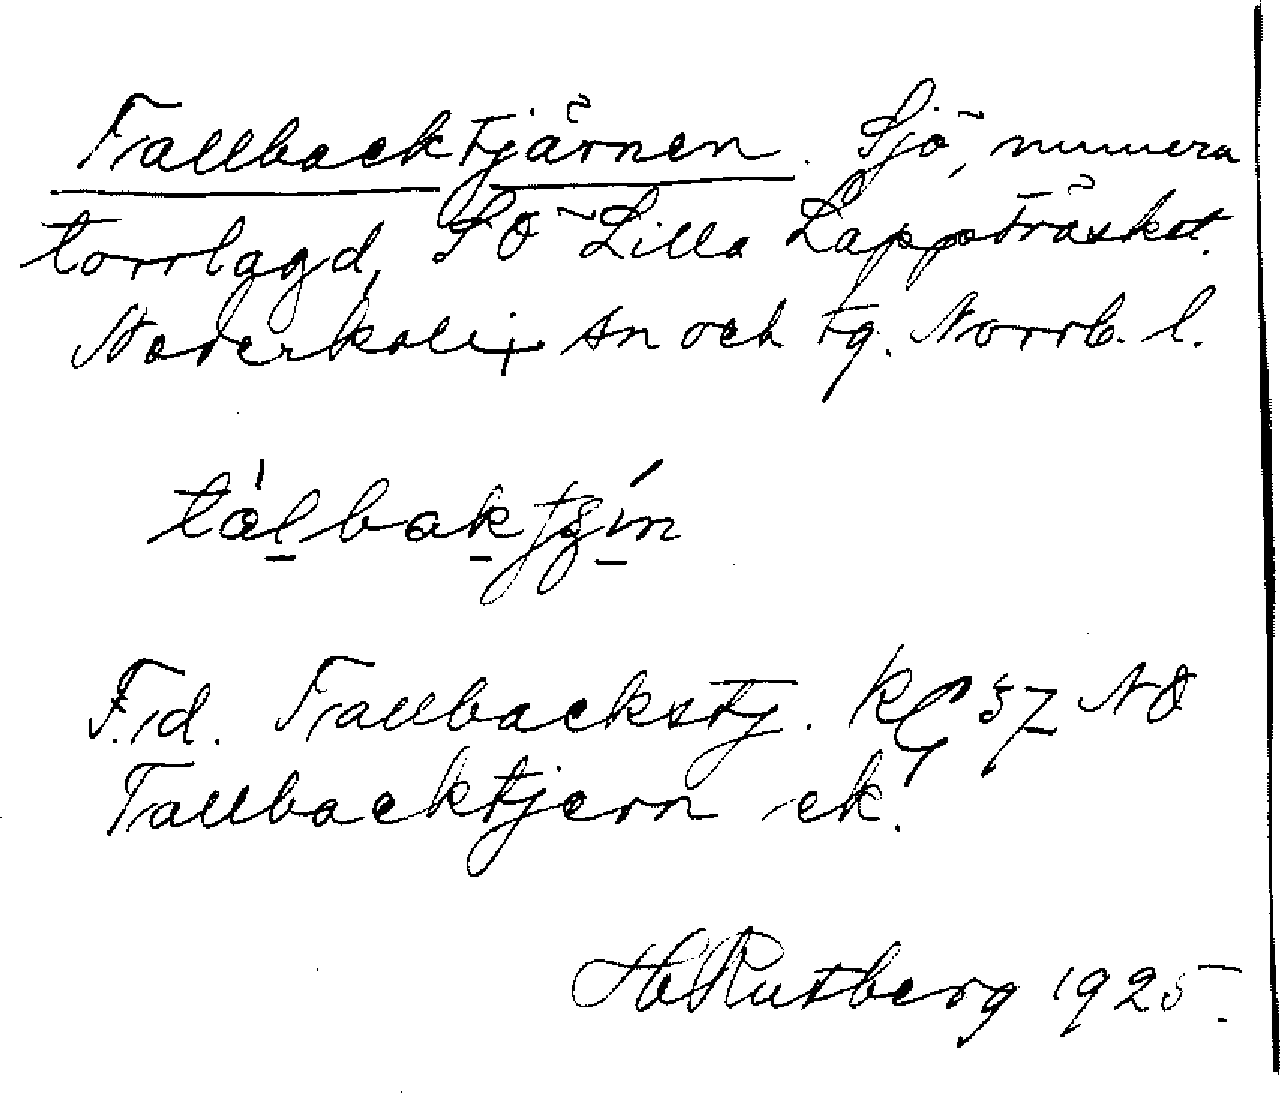 Tallbacktjärnen. Sjö, numera
torrlagd, SO Lilla Lappträsket.
Nederkalix sn och tg. Norrb. l.
tálbaktʂín
F.d. Tallbackstj. KC 37 NO
Tallbacktjern ek.
H Rutberg 1925.